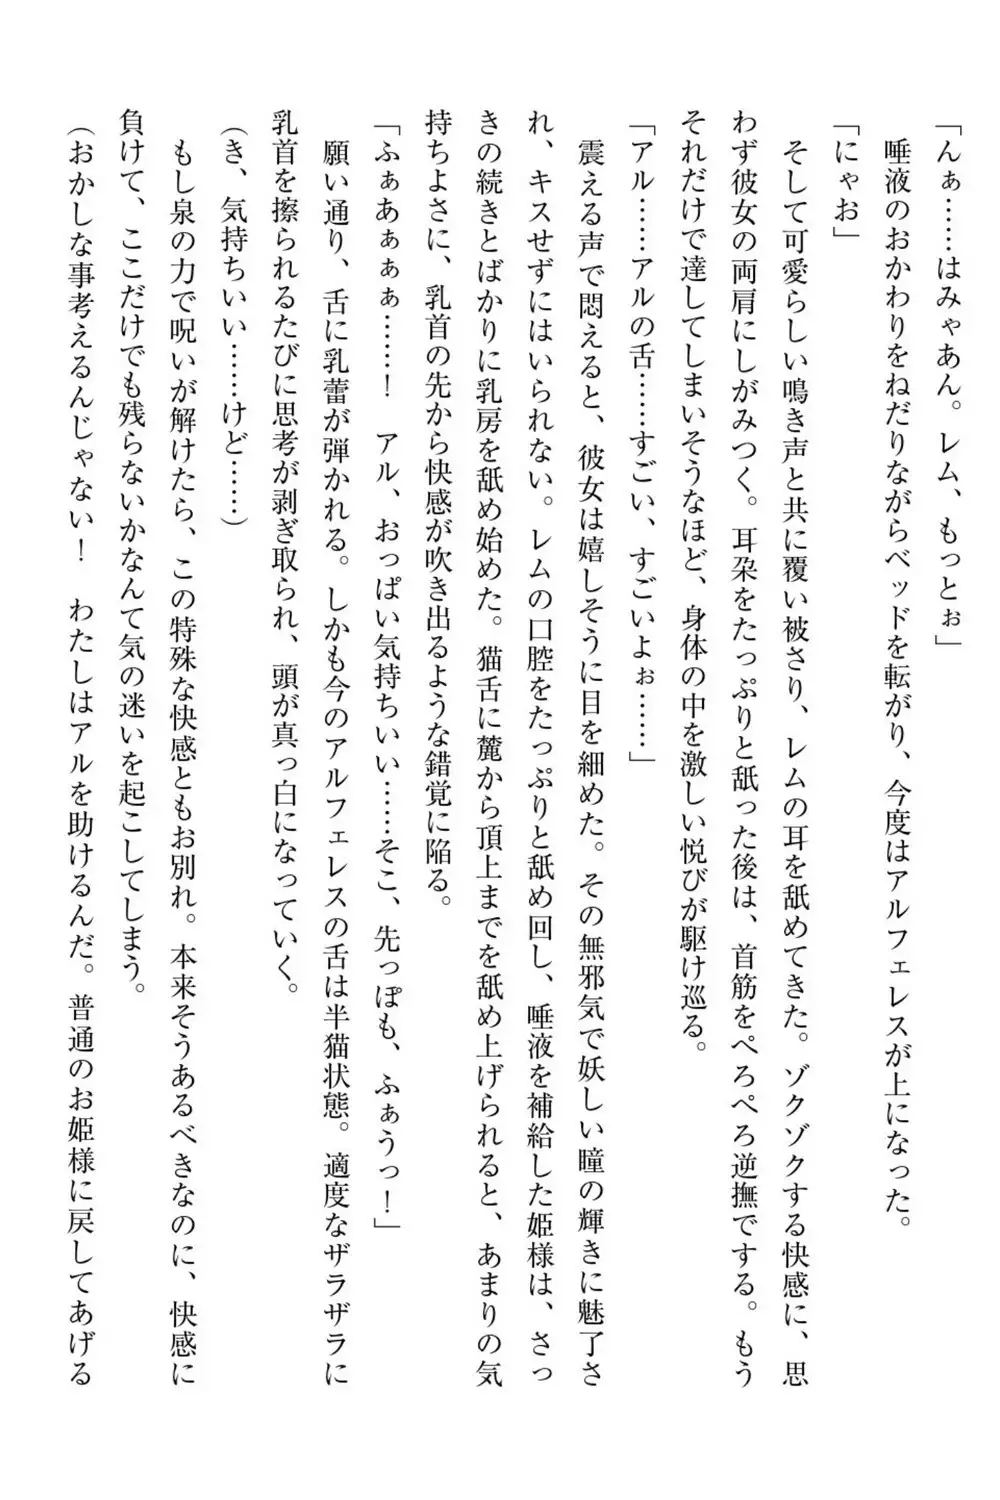 「んぁ……はみゃあん。レム、もっとぉ」
　唾液のおかわりをねだりながらベッドを転がり、今度はアルフェレスが上になった。
「にゃお」
　そして可愛らしい鳴き声と共に覆い被さり、レムの耳を舐めてきた。ゾクゾクする快感に、思
わず彼女の両肩にしがみつく。耳朶をたっぷりと舐った後は、首筋をぺろぺろ逆撫でする。もう
それだけで達してしまいそうなほど、身体の中を激しい悦びが駆け巡る。
「アル……アルの舌……すごい、すごいよぉ……」
　震える声で悶えると、彼女は嬉しそうに目を細めた。その無邪気で妖しい瞳の輝きに魅了さ
れ、キスせずにはいられない。レムの口腔をたっぷりと舐め回し、唾液を補給した姫様は、さっ
きの続きとばかりに乳房を舐め始めた。猫舌に麓から頂上までを舐め上げられると、あまりの気
持ちよさに、乳首の先から快感が吹き出るような錯覚に陥る。
「ふぁあぁぁぁ……！　アル、おっぱい気持ちいい……そこ、先っぽも、ふぁうっ！」
　願い通り、舌に乳蕾が弾かれる。しかも今のアルフェレスの舌は半猫状態。適度なザラザラに
乳首を擦られるたびに思考が剥ぎ取られ、頭が真っ白になっていく。
（き、気持ちいい……けど……）
　もし泉の力で呪いが解けたら、この特殊な快感ともお別れ。本来そうあるべきなのに、快感に
負けて、ここだけでも残らないかなんて気の迷いを起こしてしまう。
（おかしな事考えるんじゃない！　わたしはアルを助けるんだ。普通のお姫様に戻してあげる